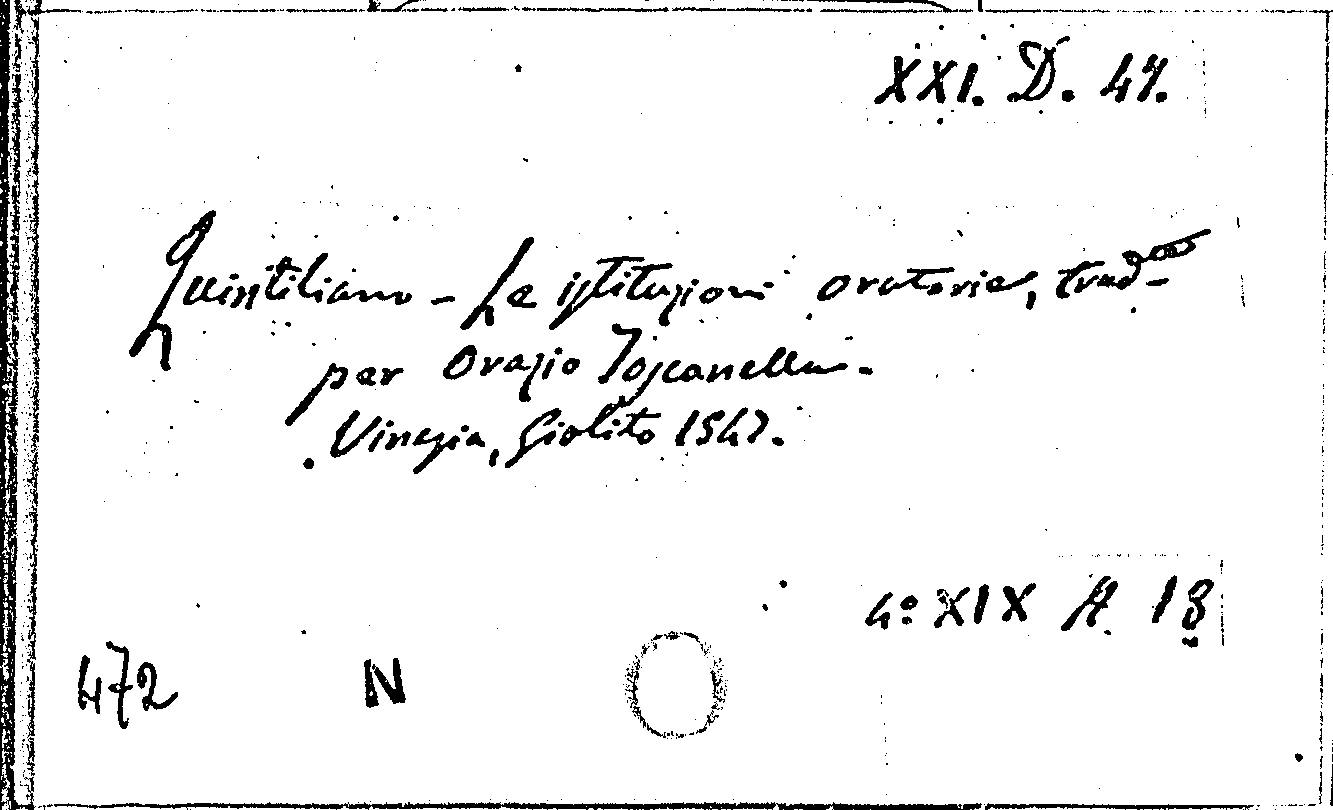 XXI. D. 47.
Quintiliano - Le istituzioni oratorie, trad-
per Orazio Toscanella.
Vinegia, Giolito 1547.
4º XIX A 18
472 N